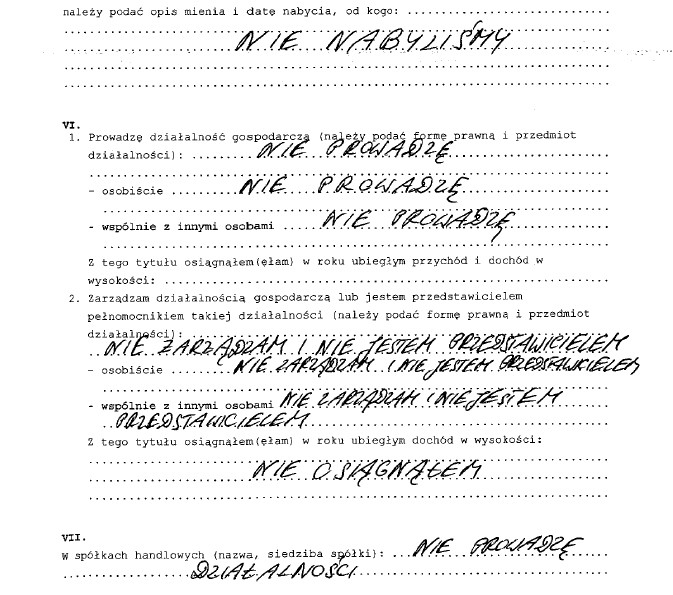 należy podać opis mienia i datę nabycia, od kogo:
NIE NABYLIŚMY
VI.
1. Prowadzę działalność gospodarczą (należy podać formę prawną i przedmiot
działalności): NIE PROWADZĘ
- osobiście NIE PROWADZĘ
- wspólnie z innymi osobami NIE PROWADZĘ
Z tego tytułu osiągnąłem(ęłam) w roku ubiegłym przychód i dochód w
wysokości:
2. Zarządzam działalnością gospodarczą lub jestem przedstawicielem
pełnomocnikiem takiej działalności (należy podać formę prawną i przedmiot
działalności):
NIE ZARZĄDZAM I NIE JESTEM PRZEDSTAWICIELEM
- osobiście NIE ZARZĄDZAM I NIE JESTEM PRZEDSTAWICIELEM
- wspólnie z innymi osobami NIE ZARZĄDZAM I NIE JESTEM
PRZEDSTAWICIELEM
Z tego tytułu osiągnąłem(ęłam) w roku ubiegłym dochód w wysokości:
NIE OSIĄGNĄŁEM
VII.
W spółkach handlowych (nazwa, siedziba spółki): NIE PROWADZĘ
DZIAŁALNOŚCI